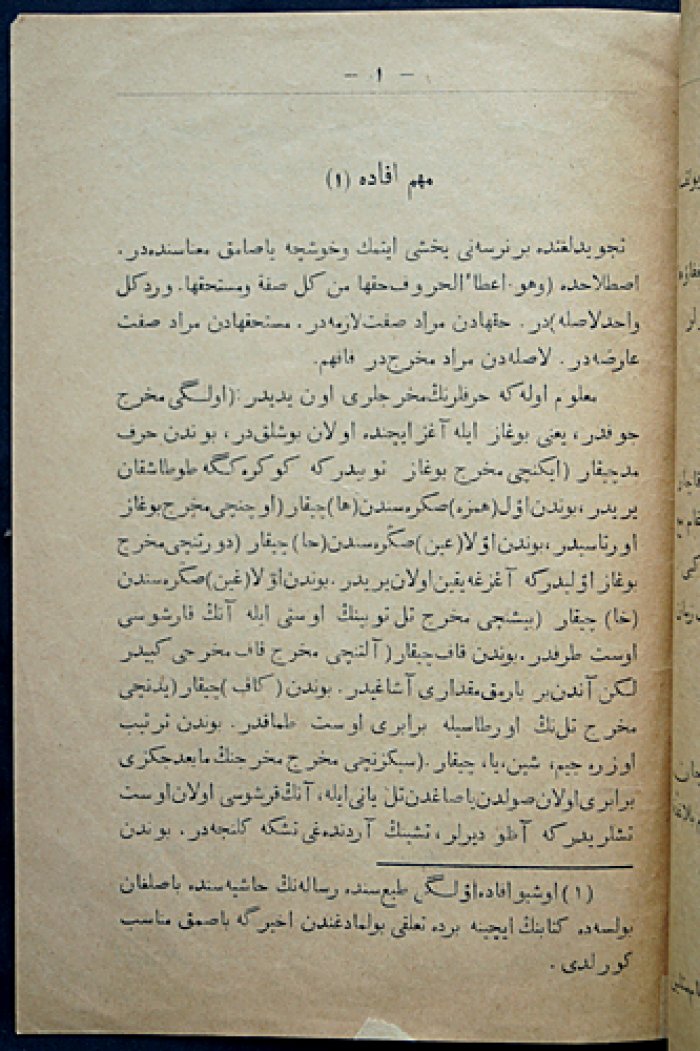 — ١ —
مهم افاده (١)
تجويدلغتده برنرسه‌نی يخشی ايتمك وخوشچه ياصامق معناسنده‌در.
اصطلاحده (وهو اعطاءالحروف‌حقها من كل صفة ومستحقها. وردكل
واحدلاصله)در. حقهادن مراد صفت‌لازمه‌در. مستحقهادن مراد صفت
عارضه‌در. لاصله‌دن مراد مخرج‌در فافهم.
معلوم اوله‌كه حرفلرنڭ‌مخرجلری اون يديدر:(اولگی مخرج
جوفدر، يعنی بوغاز ايله آغزايچنده اولان بوشلق‌در، بوندن حرف
مدچيقار (ايكنچی مخرج بوغاز توبيدركه كوكره‌كگه طوطاشقان
يريدر،بوندن‌اؤل(همزه)صڭره‌سندن(ها)چيقار(اوچنچی‌مخرج‌بوغاز
اورتاسيدر،بوندن‌اؤلا(عين)صڭره‌سندن(حا)چيقار (دورتنچی‌مخرج
بوغاز اؤليدركه آغزغه‌يقين‌اولان‌يريدر.بوندن‌اؤلا(غين)صڭره‌سندن
(خا) چيقار (بيشنچی مخرج تل توبينڭ اوستی ايله آنڭ قارشوسی
اوست طرفدر.بوندن قاف‌چيقار(آلتنچی مخرج قاف مخرجی كبيدر
لكن آندن‌بر بارمق‌مقداری آشاغيدر. بوندن(كاف)چيقار(يدنچی
مخرج تل‌نڭ اورطاسيله برابری اوست طماقدر. بوندن ترتيب
اوزره جيم، شين،يا، چيقار.(سيكزنچی مخرج مخرجنڭ مابعدجكزی
برابری‌اولان‌صولدن‌ياصاغدن‌تل يانی‌ايله، آنڭ‌قرشوسی اولان‌اوست
تشلريدركه آظو ديرلر، تشينڭ آردنده‌غی‌تشكه كلنجه‌در. بوندن
(١)اوشبو افاده‌اؤلگی طبع‌سنده رساله‌نڭ حاشيه‌سنده باصلغان
بولسه‌ده كتابنڭ ايچينه برده تعلقی بولمادغندن اخيرگه باصمق مناسب
كورلدی.